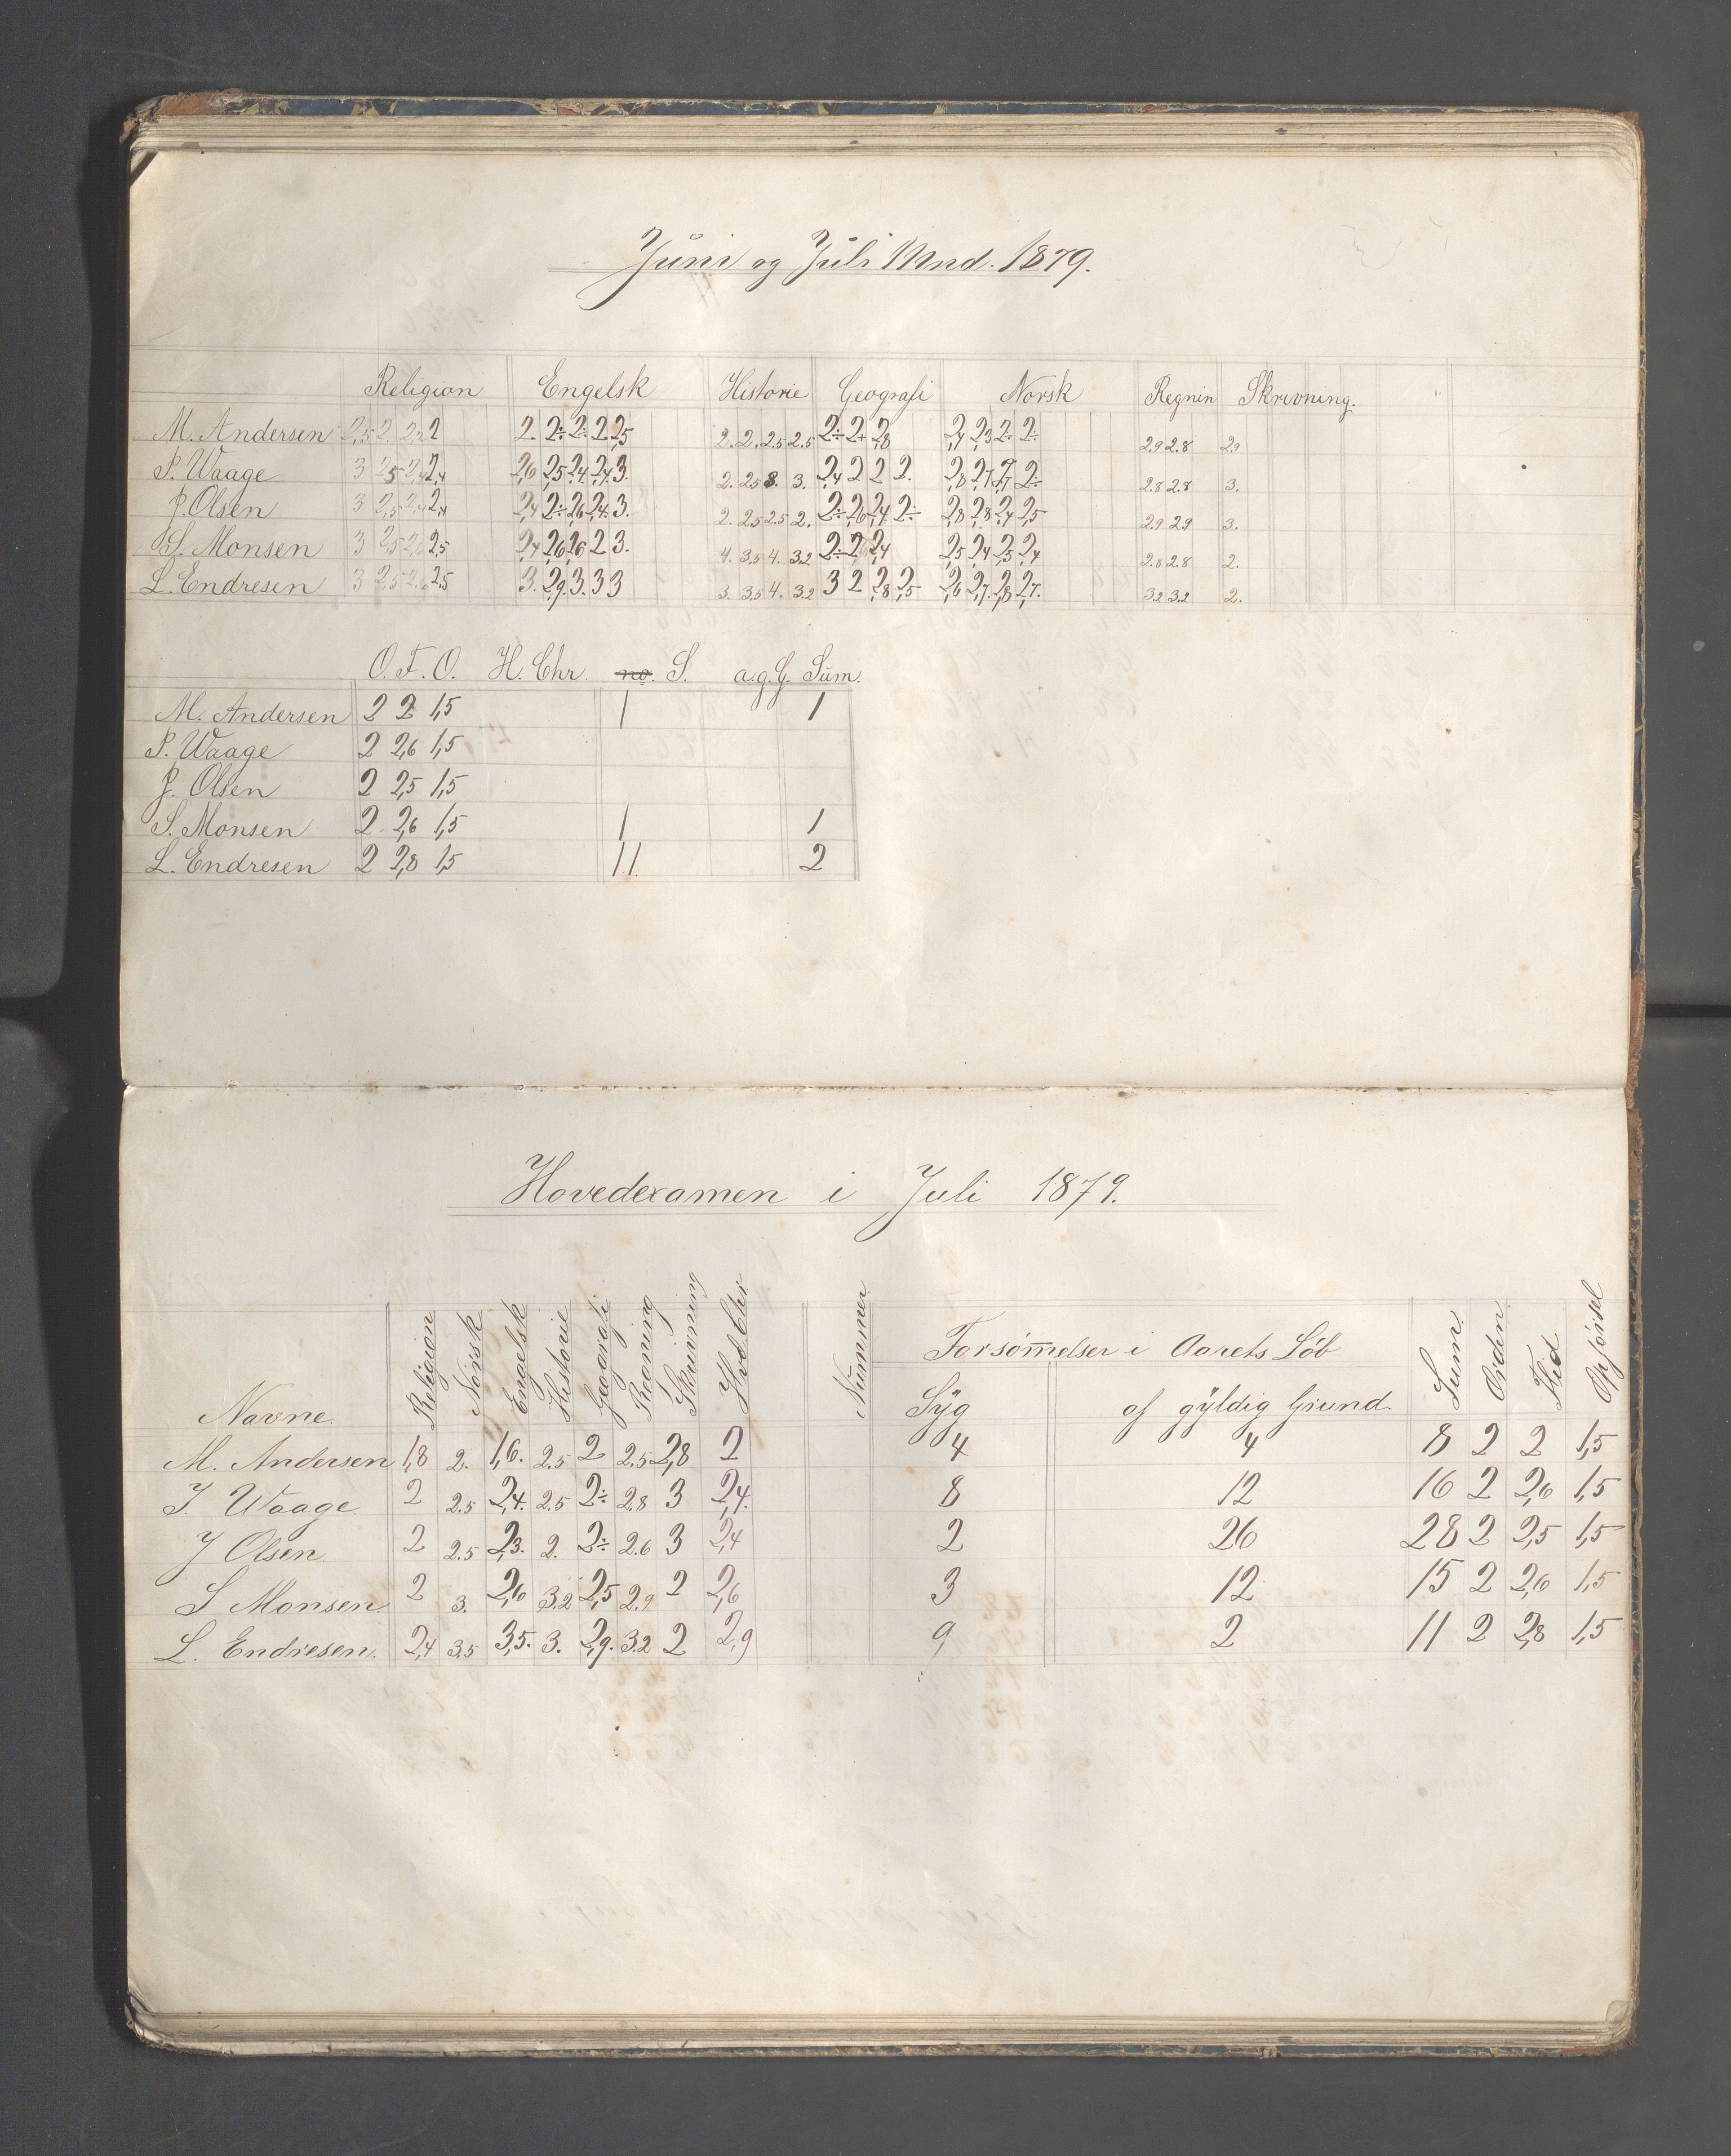 Juni og Juli Mnd. 1879.
Religion Engelsk Historie Geografi Norsk Regnin Skrivning.
M. Andersen 2,5 2. 2,2 2 2 2÷ 2÷ 2 2,5 2. 2. 2.5 2.5 2÷ 2+ 2,8 2,4 2,3 2÷ 2÷ 2.9 2.8 2,9
P. Waage 3 2,5 2,4 2,4 2,6 2,5 2,4 2,4 3. 2. 2.5 3. 3. 2,4 2 2 2. 2,8 2,7 2,7 2÷ 2.8 2.8 3.
J. Olsen 3 2,5 2,4 2,4 2,4 2÷ 2,6 2,4. 3. 2. 2.5 2.5 2. 2÷ 2,6 2,4 2÷ 2,8 2,8 2,4 2,5 2.9 2.9 3.
S. Monsen 3 2,5 2,5 2,4 2,6 2,6 2 3. 4. 3.5 4. 3.2 2÷ 2,6 2,4 2,5 2,4 2,5 2,4 2.8 2.8 2.
L. Endresen 3 2,5 2. 2,5 3. 2,9. 3. 3 3 3. 3.5 4. 3.2 3 2 2,8 2,5 2,6 2,7. 2,8 2,7. 3.2 3.2 2.
O. F. O. H. Chr. no. S. a.g.G. Sum.
M. Andersen 2 2 1,5 1 1
P. Waage 2 2,6 1,5
J. Olsen 2 2,5 1,5
S. Monsen 2 2,6 1,5 1 1
L. Endresen 2 2,8 1,5 11 2
Hovedexamen i Juli 1879.
Navne. Religion Norsk Engelsk Historie Geografi Regning Skrivning Hvd. Chr Nummer Forsømmelser i Aarets Løb Sum. Orden Flid Opførsel
Syg af gyldig Grund.
M. Andersen 1,8 2. 1,6. 2.5 2 2.5 2,8 2 4 4 8 2 2 1,5
P. Waage 2 2.5 2,4. 2.5 2÷ 2.8 3 2,4. 8 12 16 2 2,6 1,5
J Olsen 2 2.5 2,3. 2. 2÷ 2.6 3 2,4 2 26 28 2 2,5 1,5
S Monsen 2 3. 2,6 3.2 2,5 2.9 2 2,6 3 12 15 2 2,6 1,5
L. Endresen. 2,4 3.5 3,5. 3. 2,9. 3.2 2 2,9 9 2 11 2 2,8 1,5